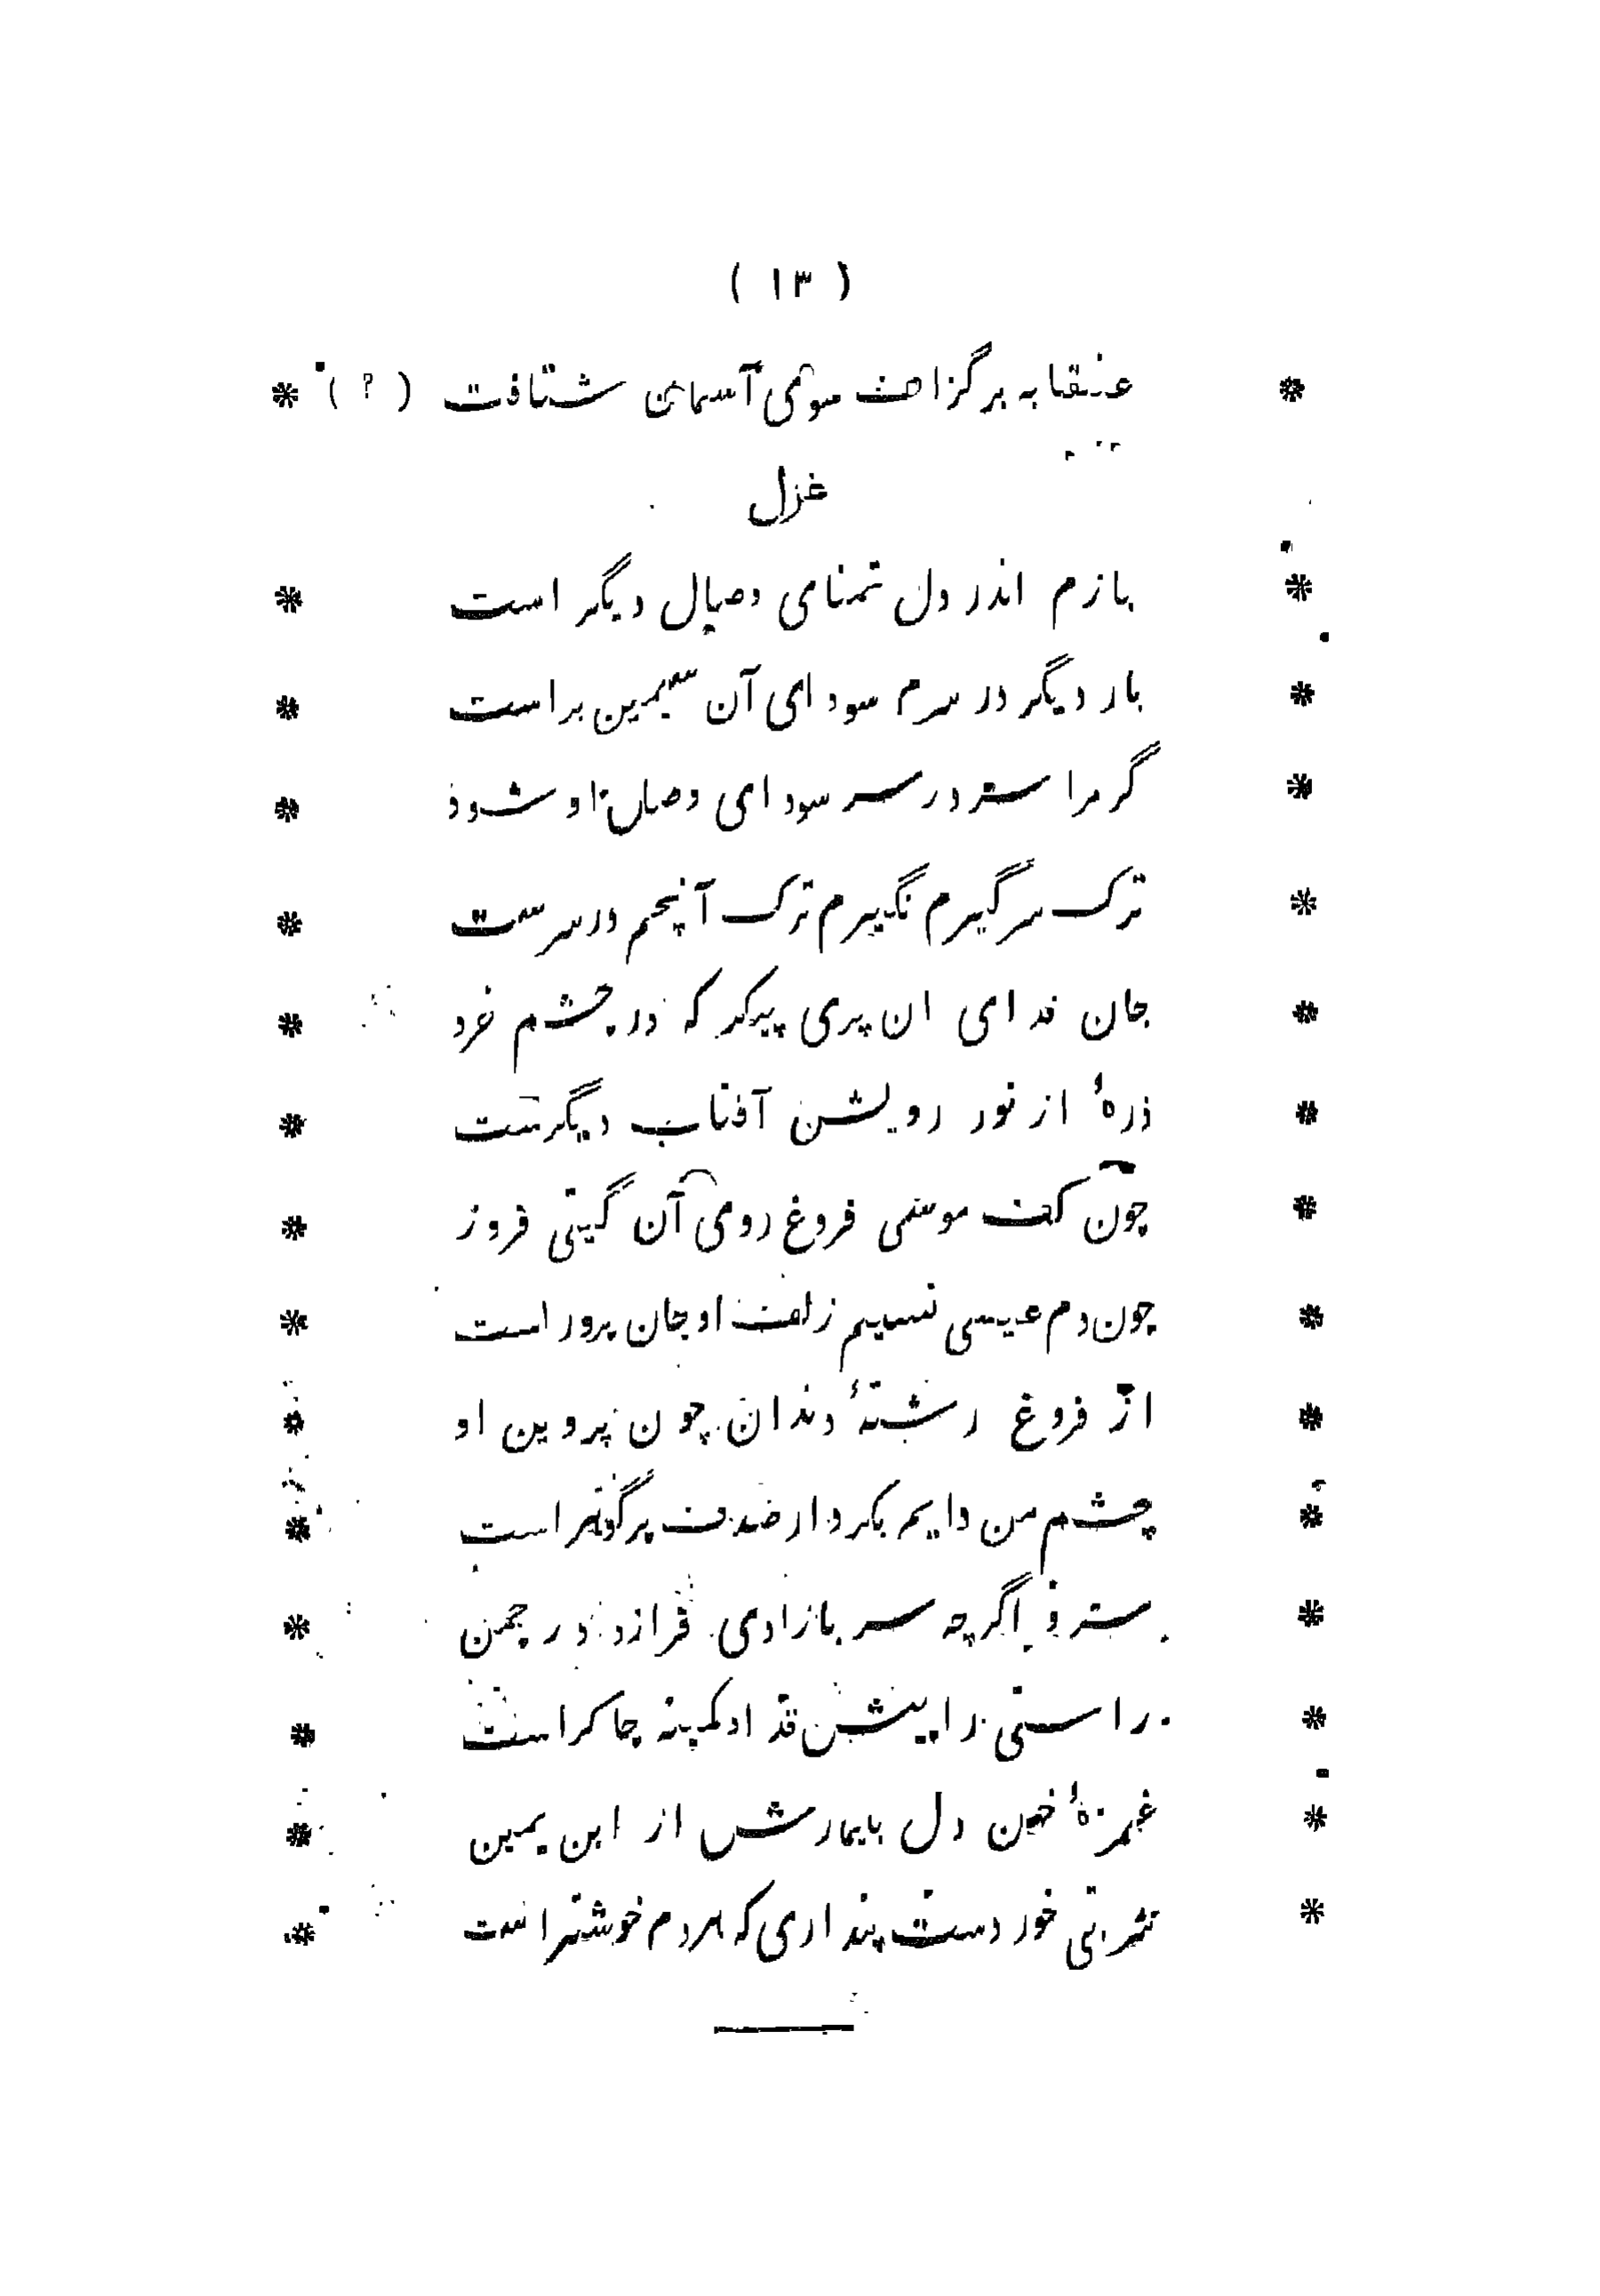 ( ۱۳ )
* عنقا به برگزاف سوی آسمان شتافت ( ? ) *
غزل
* بازم اندر دل تمنای وصال دیگر است *
* بار دیگر در سرم سودای آن سیمین براست *
* گر مرا سر در سر سودای وصل او شود *
* ترک سر گیرم نگیرم ترک آنچم در سرست *
* جان فدای ان پری پیکر که در چشم خرد *
* ذرهٔ از نور رویش آفتاب دیگرست *
* چون کف موسی فروغ روی آن گیتی فروز *
* چون دم عیسی نسیم زلف او جان پرور است *
* از فروغ رشتهٔ دندان چون پروین او *
* چشم من دایم بکردار صدف پر گوهر است *
* سرو اگرچه سر بازادی فرازد در چمن *
* راستی را پیش قد او کمینه چاکر است *
* غمزهٔ خون دل بیمارش از ابن یمین *
* شربتی خوردست پنداری که هردم خوشتر است *